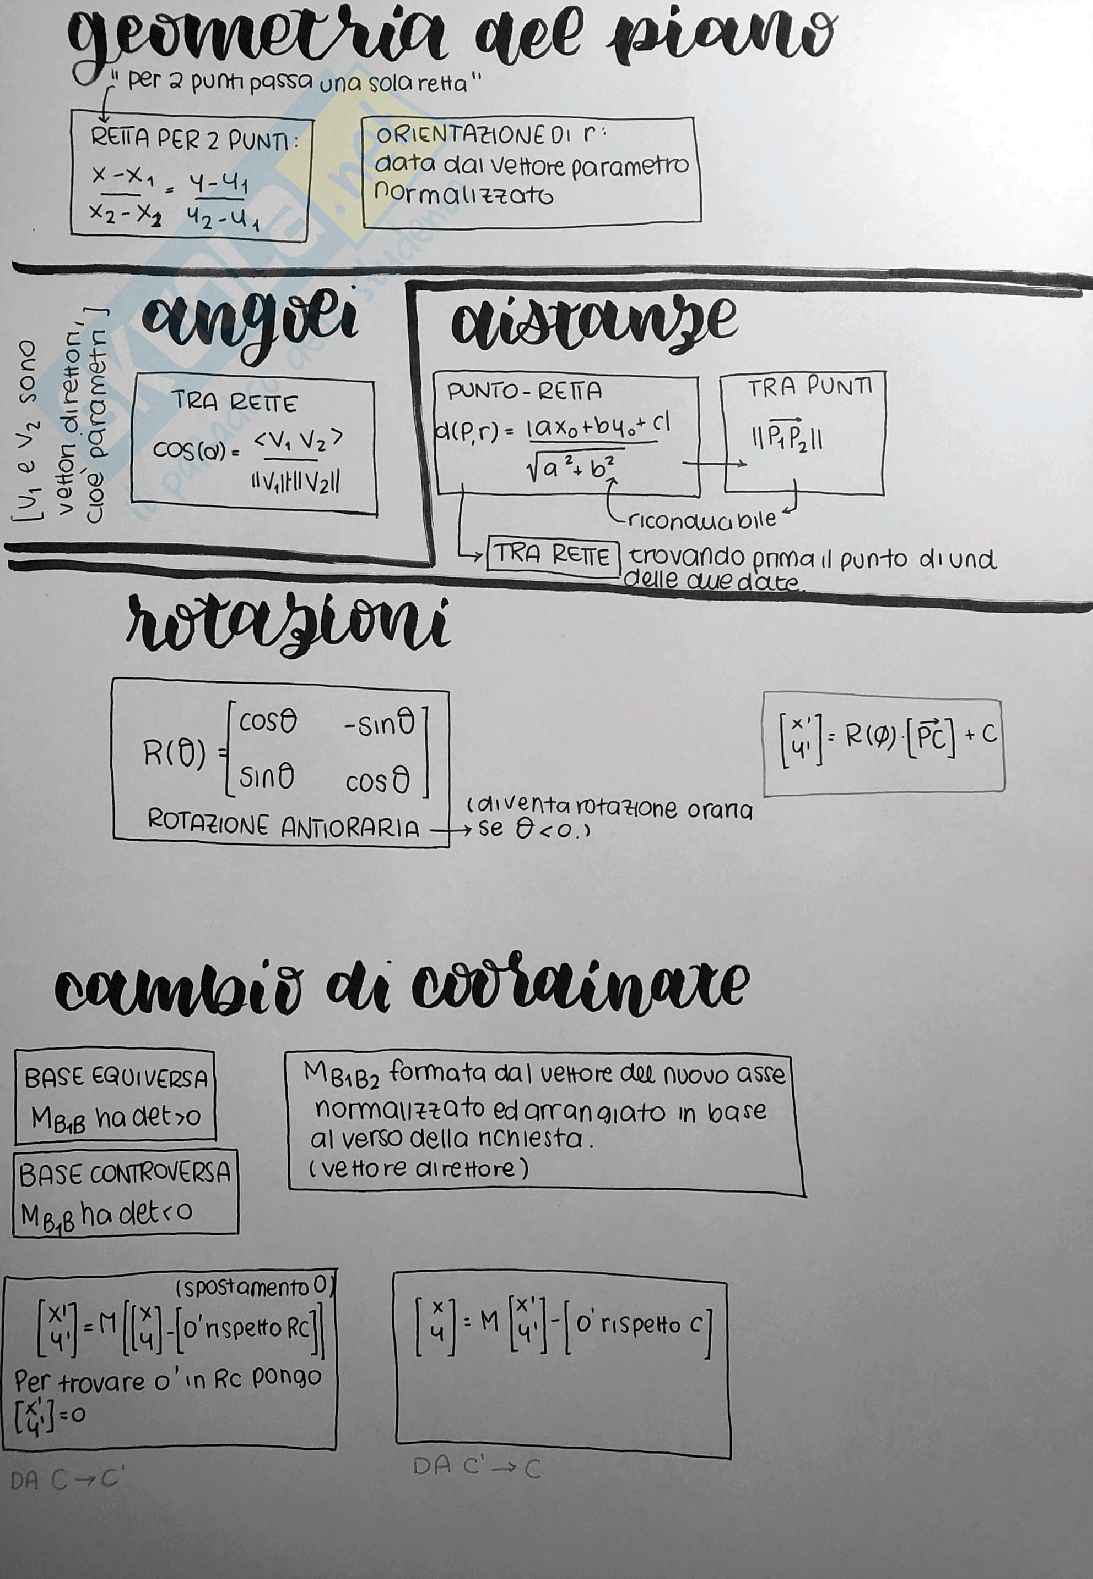 geometria del piano
"per 2 punti passa una sola retta"
RETTA PER 2 PUNTI:
x-x₁ / x₂-x₂ = y-y₁ / y₂-y₁
ORIENTAZIONE DI r:
data dal vettore parametro
normalizzato
angoli
[v₁ e v₂ sono
vettori direttori,
cioè parametri]
TRA RETTE
cos(θ) = <v₁ v₂> / ||v₁||·||v₂||
distanze
PUNTO-RETTA
d(P,r) = |ax₀+by₀+c| / √a²+b²
TRA PUNTI
||P₁P₂||
riconducibile
TRA RETTE trovando prima il punto di una
delle due date.
rotazioni
R(θ) = [cosθ -sinθ
sinθ cosθ]
ROTAZIONE ANTIORARIA → (diventa rotazione oraria
se θ<0.)
[x' y'] = R(φ)·[PC] + C
cambio di coordinate
BASE EQUIVERSA
M_B₁B ha det>0
BASE CONTROVERSA
M_B₁B ha det<0
M_B1B2 formata dal vettore del nuovo asse
normalizzato ed arrangiato in base
al verso della richiesta.
(vettore direttore)
(spostamento O)
[x' y'] = M[[x y]-[O' rispetto RC]]
Per trovare O' in RC pongo
[x' y']=0
DA C→C'
[x y] = M [x' y'] - [O' rispetto C]
DA C'→C